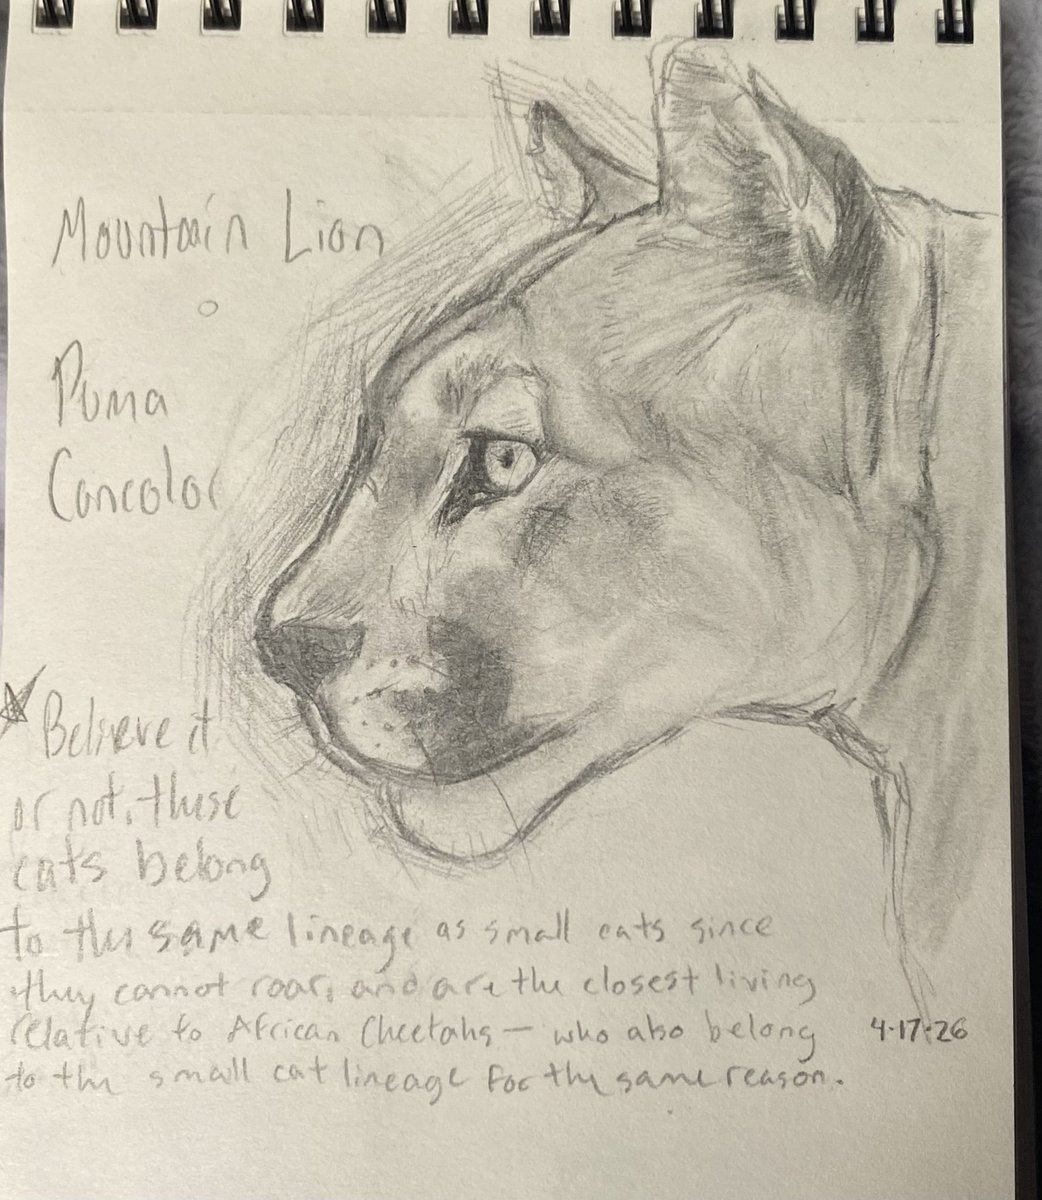 Mountain Lion
Puma
Concolor
Believe it
or not, these
cats belong
to the same lineage as small cats since
they cannot roar, and are the closest living
relative to African Cheetahs — who also belong
to the small cat lineage for the same reason.
4-17-26